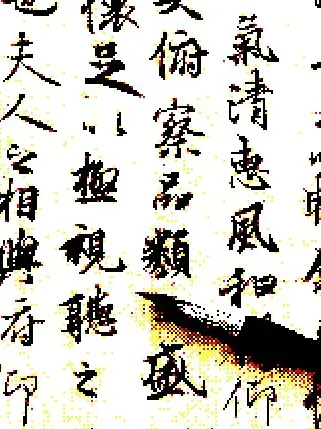 氣清惠風和仰
俯察品類盛
懷足以極視聽之
也夫人之相與俯仰